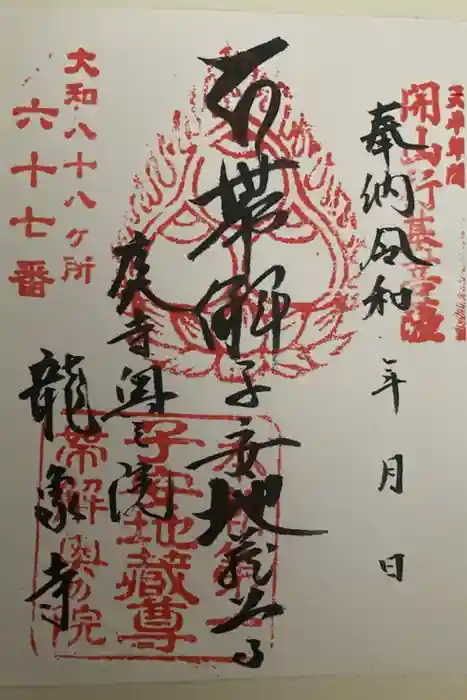 天平年間
開山行基菩薩
奉納令和 年 月 日
帯解子安地蔵
奥之院
龍象寺
大和八十八ケ所
六十七番
子安地蔵尊
帯解奥の院